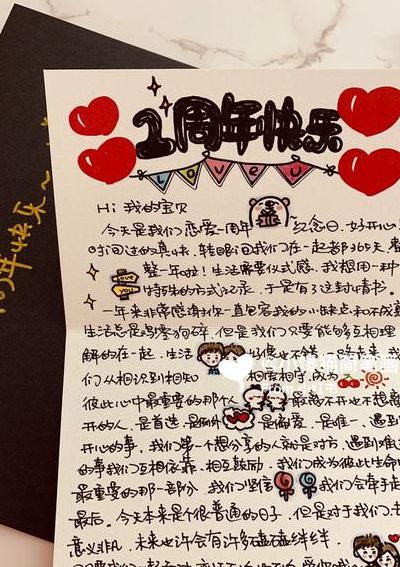 1周年快乐
LOVE U
周年快乐~
Hi 我的宝贝
今天是我们恋爱一周年 纪念日.好开心
时间过的真快.转眼间我们在一起都365天
整一年啦!生活需要仪式感.我想用一种
love you
特殊的方式记录.于是有了这封情书.
一年来非常感谢你一直包容我的小缺点和不成
生活总是鸡零狗碎.但是我们只要能够互相理
解的在一起.生活
们从相识到相知 相
彼此心中最重要的那个 最 也不想
开的人.是首选.是例外 是偏爱.是唯一.遇到
开心的事.我们第一个想分享的人就是对方.遇到难
的事我们互相依靠.相互鼓励.我们成为彼此生命
最重要的那一部分.我们坚信 我们会牵手
最后.今天本来是个很普通的日子.但是对于我们
意义非凡.未来也许会有许多磕磕绊绊.